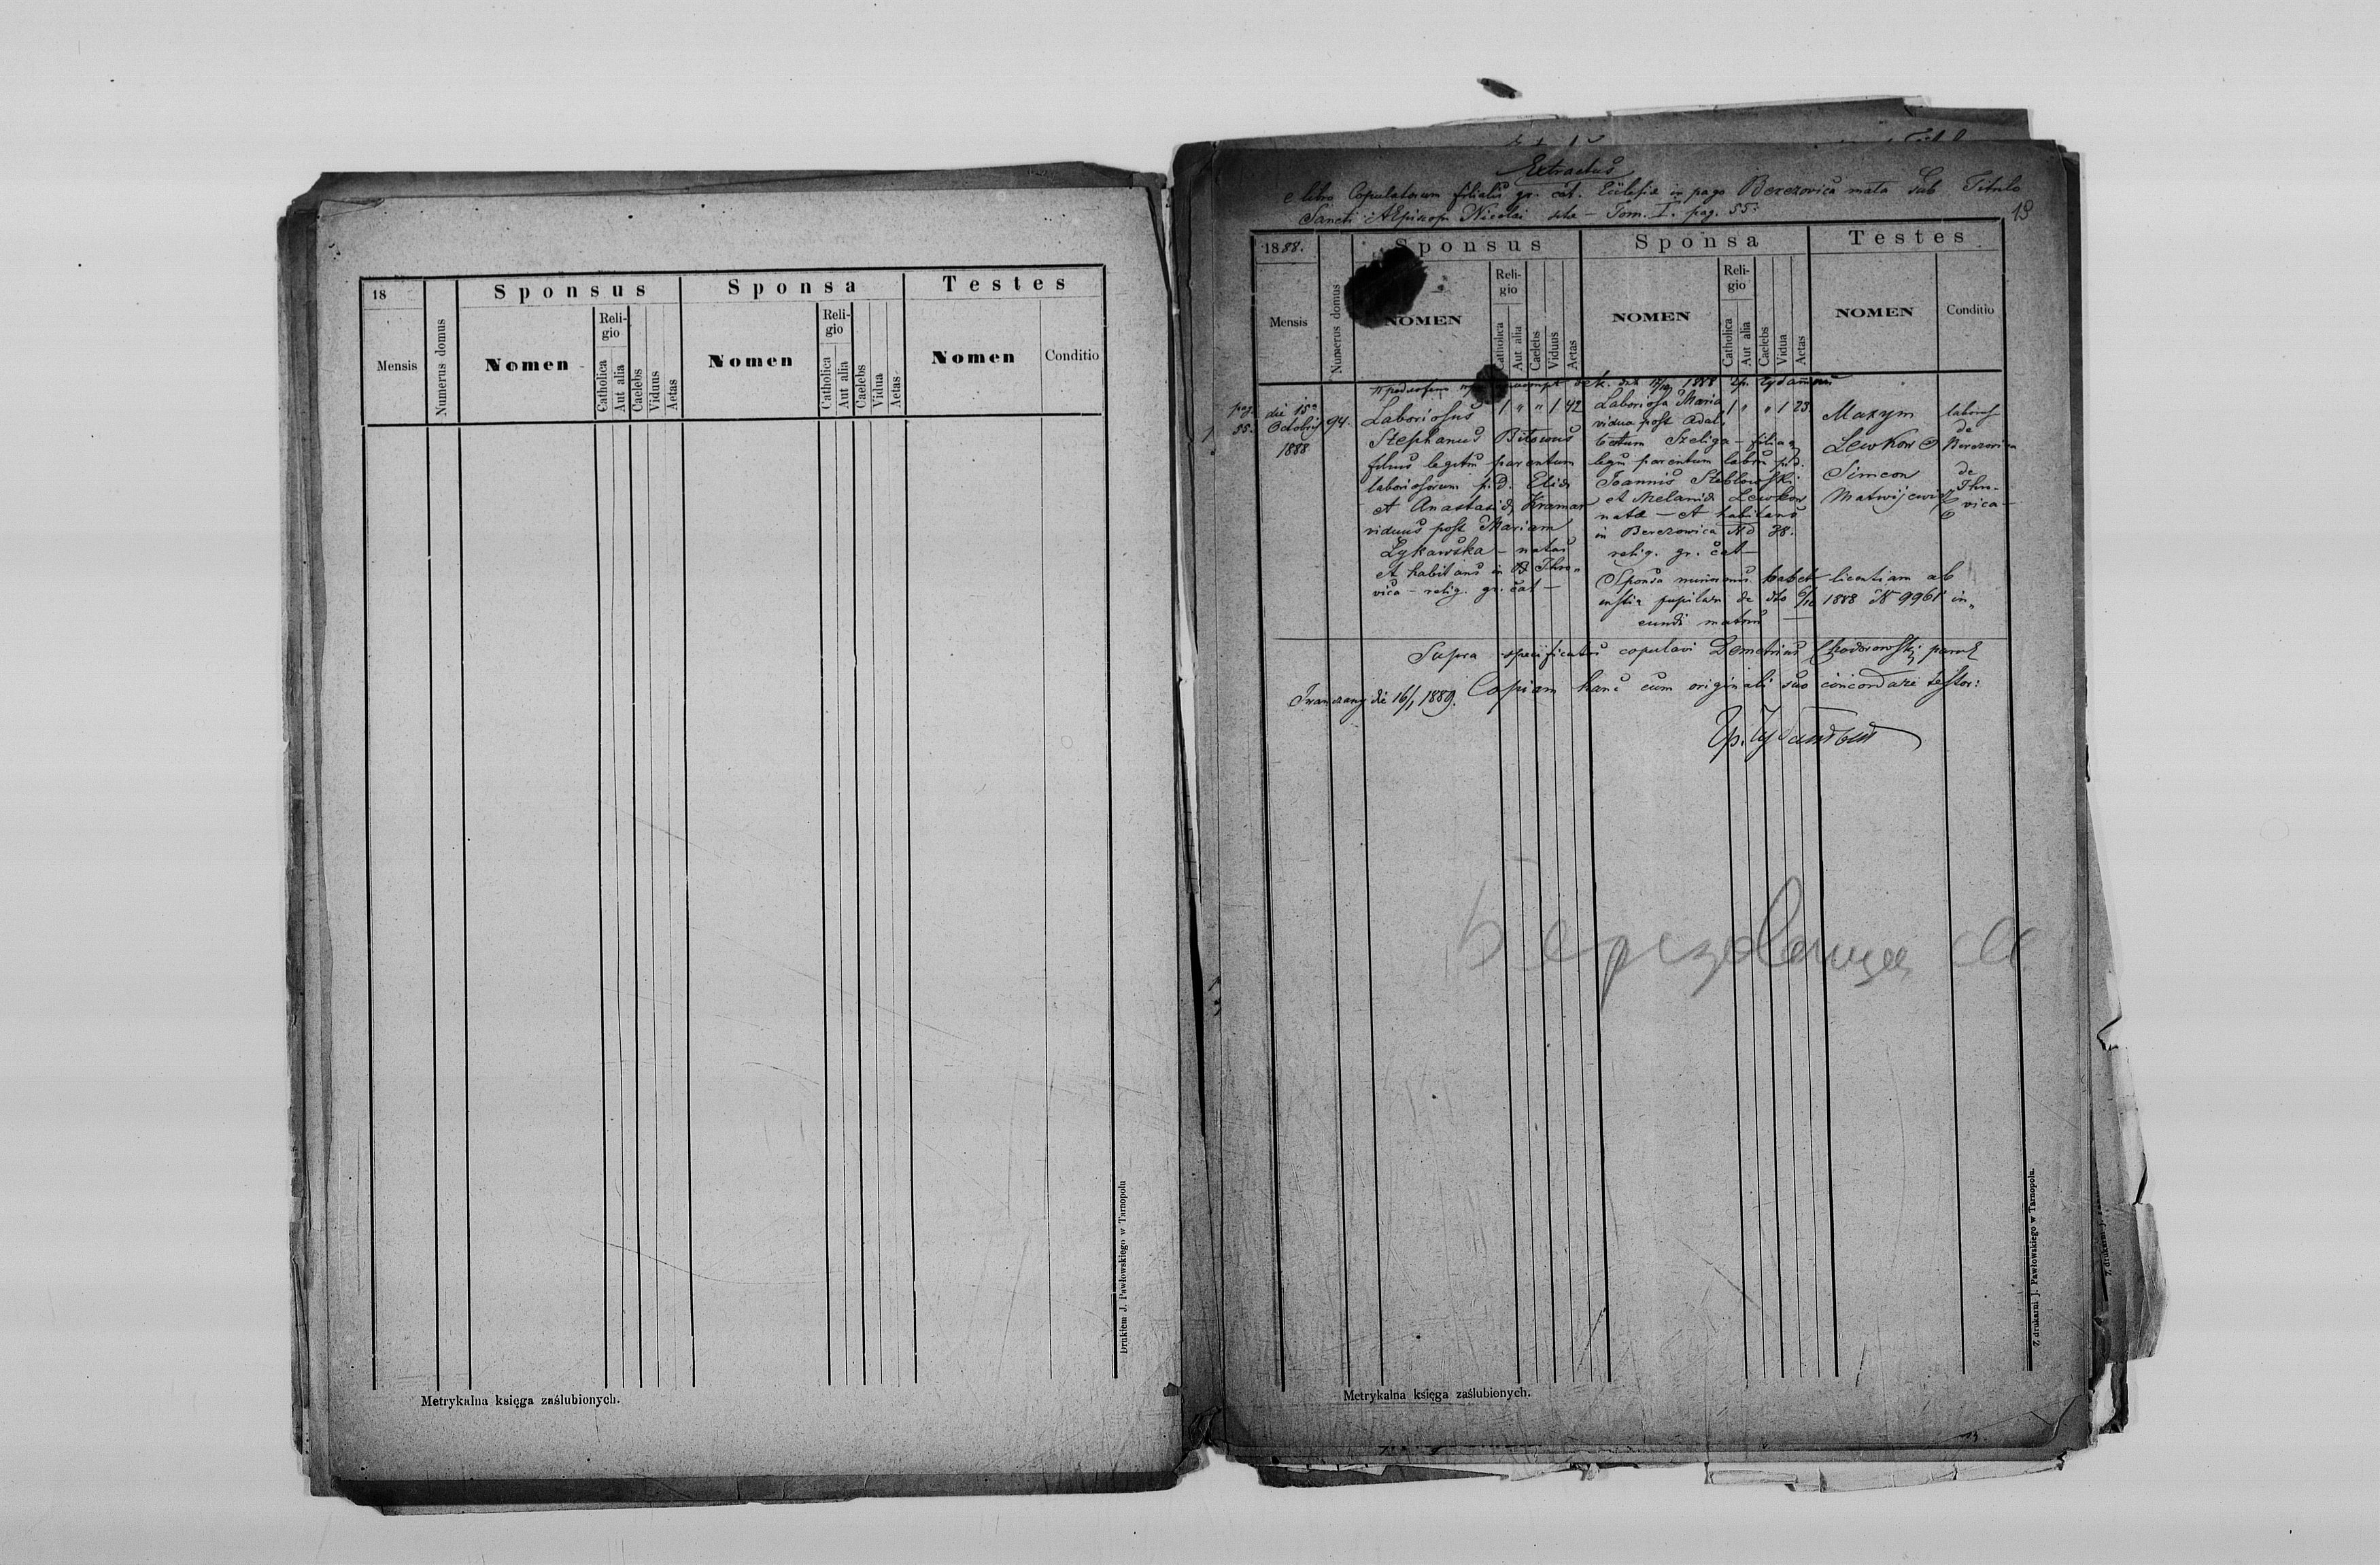 18
Mensis
Numerus domus
Sponsus
Nomen
Reli-
gio
Catholica
Aut alia
Caelebs
Viduus
Aetas
Sponsa
Nomen
Reli-
gio
Catholica
Aut alia
Caelebs
Vidua
Aetas
Testes
Nomen
Conditio
Drukiem J. Pawłowskiego w Tarnopolu
Metrykalna księga zaślubionych.
Extractus
e libro Copulatorum filialis gr. cat. Ecclesiae in pago Berezovica mala sub Titulo
Sancti AEpiscop. Nicolai Tom. I. pag. 55.
19
1888.
Mensis
Numerus domus
Sponsus
NOMEN
Reli-
gio
Catholica
Aut alia
Caelebs
Viduus
Aetas
Sponsa
NOMEN
Reli-
gio
Catholica
Aut alia
Caelebs
Vidua
Aetas
Testes
NOMEN
Conditio
1888
pag.
55.
die 15a
Octobris
1888
94.
Laboriosus
Stephanus Bitowus
filius legitm parentum
laboriosorum p.d. Eliae
et Anastasiae Kramar
viduus post Mariam
Lykawska – natus
et habitans in Ihro„
vica – relig. gr. cat –
1 „ „ 1 42
Laboriosa Maria
vidua post Adal„
bertum Szeliga – filia
legm parentum labrm p.d.
Joannis Steblowski
et Melaniae Lewkow
nata – et habitans
in Berezowica No 38.
relig. gr. cat –
1 „ „ 1 23.
Sponsa minorenis habet licentiam ab
1888 N 9961 in„
eundi matrm –
Maxym
Lewkow
Simeon
Matwijewicz
de
Berezovica
de
Ihro-
vica –
Supra specificatos copulavi Demetrius Chodorowski paroch
Iwanczany die 16/1 1889. Copiam hanc cum originali suo concordare testor:
Metrykalna księga zaślubionych.
Z drukarni J. Pawłowskiego w Tarnopolu.